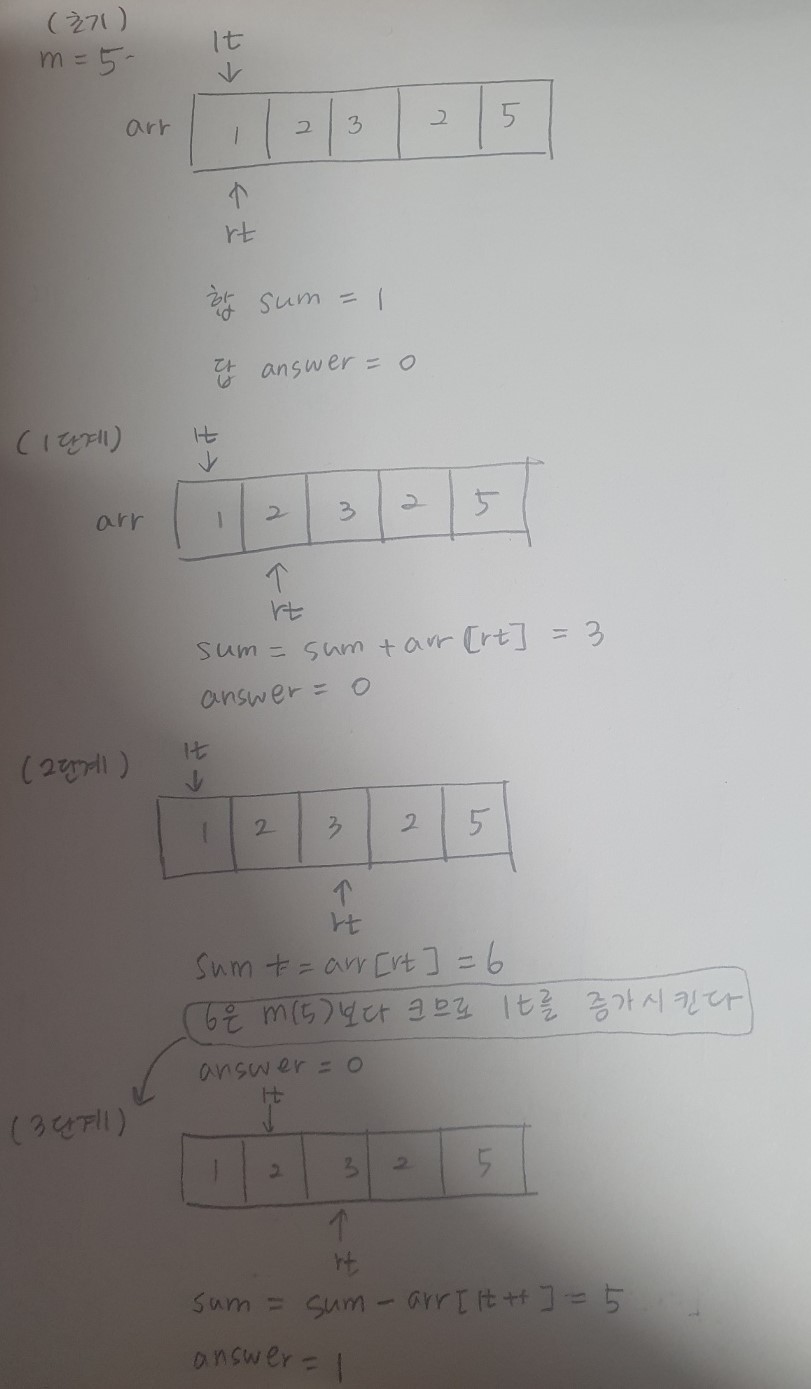 (초기)
m = 5
lt
↓
arr 1 2 3 2 5
↑
rt
합 sum = 1
답 answer = 0
(1단계)
lt
↓
arr 1 2 3 2 5
↑
rt
sum = sum + arr [rt] = 3
answer = 0
(2단계)
lt
↓
1 2 3 2 5
↑
rt
sum += arr[rt] = 6
6은 m(5)보다 크므로 lt를 증가시킨다
answer = 0
(3단계)
lt
↓
1 2 3 2 5
↑
rt
sum = sum - arr[lt++] = 5
answer = 1